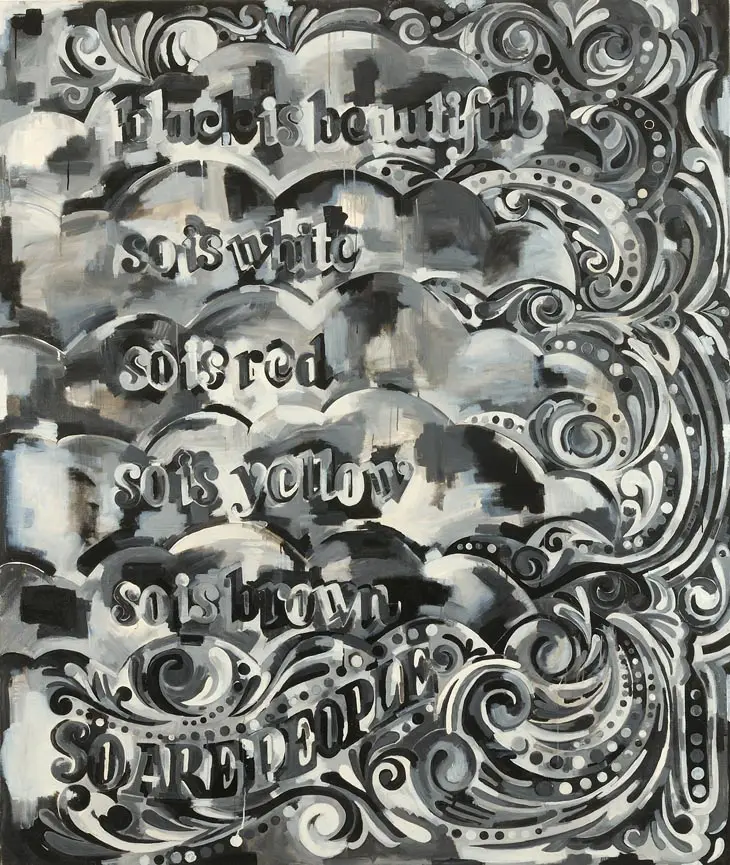 black is beautiful
so is white
so is red
so is yellow
so is brown
SO ARE PEOPLE